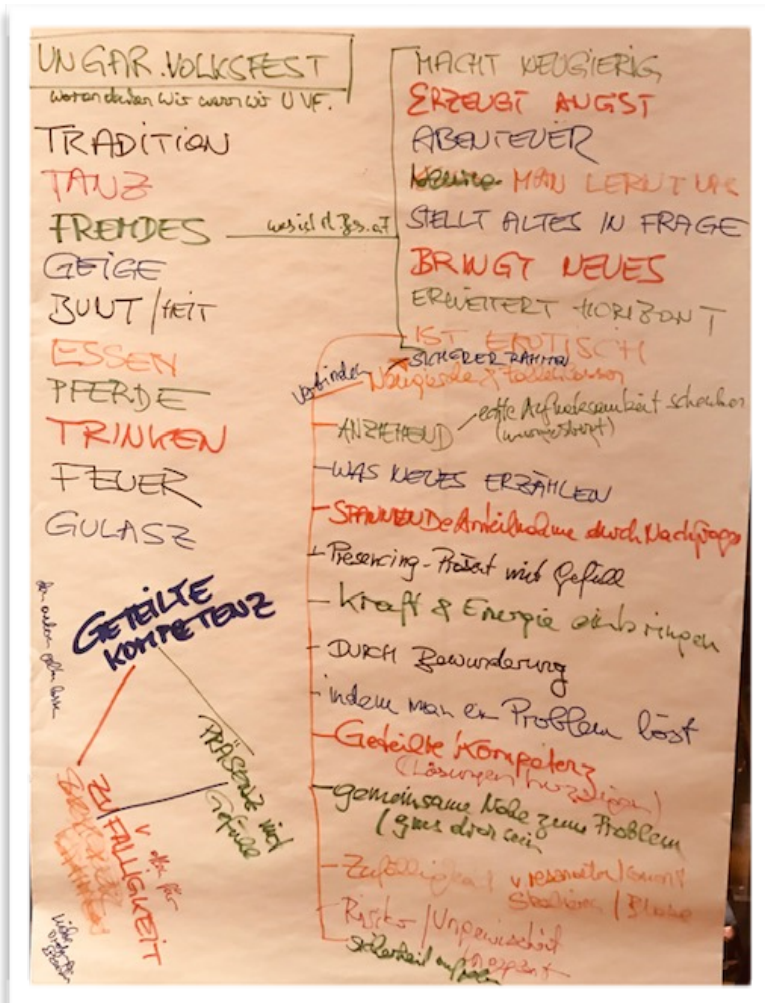 UNGAR. VOLKSFEST
woran denken wir wenn wir UVF.
TRADITION
TANZ
FREMDES
GEIGE
BUNT/HEIT
ESSEN
PFERDE
TRINKEN
FEUER
GULASZ
MACHT NEUGIERIG
ERZEUGT ANGST
ABENTEUER
MAN LERNT
STELLT ALTES IN FRAGE
BRINGT NEUES
ERWEITERT HORIZONT
IST EROTISCH
SICHERER RAHMEN
verbinden
Neugierde &
ANZIEHEND
echte Aufmerksamkeit schenken
WAS NEUES ERZÄHLEN
SPANNENDE Anteilnahme durch Nachfragen
Presencing - Präsent mit Gefühl
Kraft & Energie einbringen
DURCH Bewunderung
indem man ein Problem löst
Geteilte Kompetenz
(Lösungen
gemeinsame Nähe zum Problem
Zufälligkeit
Risiko / Ungewissheit
Sicherheit
GETEILTE
KOMPETENZ
PRÄSENZ mit
Gefühl
ZUFÄLLIGKEIT